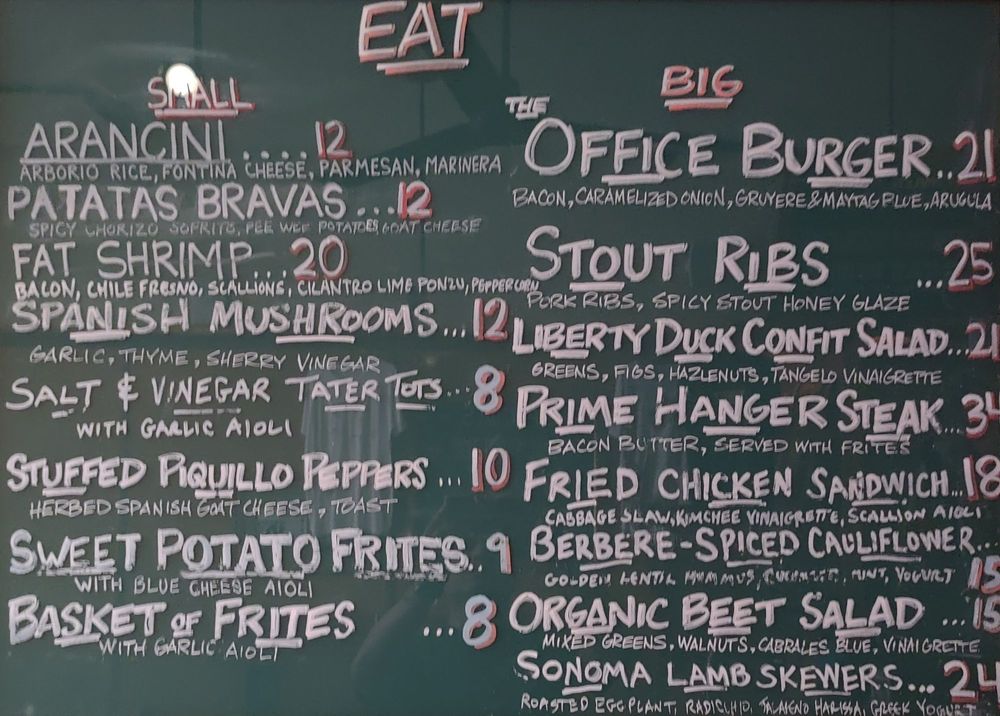 EAT
SMALL
ARANCINI....12
ARBORIO RICE, FONTINA CHEESE, PARMESAN, MARINERA
PATATAS BRAVAS...12
SPICY CHORIZO SOFRITO, PEE WEE POTATOES, GOAT CHEESE
FAT SHRIMP...20
BACON, CHILE FRESNO, SCALLIONS, CILANTRO LIME PONZU, PEPPERCORN
SPANISH MUSHROOMS...12
GARLIC, THYME, SHERRY VINEGAR
SALT & VINEGAR TATER TOTS..8
WITH GARLIC AIOLI
STUFFED PIQUILLO PEPPERS...10
HERBED SPANISH GOAT CHEESE, TOAST
SWEET POTATO FRITES..9
WITH BLUE CHEESE AIOLI
BASKET OF FRITES ...8
WITH GARLIC AIOLI
BIG
THE
OFFICE BURGER..21
BACON, CARAMELIZED ONION, GRUYERE & MAYTAG BLUE, ARUGULA
STOUT RIBS ...25
PORK RIBS, SPICY STOUT HONEY GLAZE
LIBERTY DUCK CONFIT SALAD..21
GREENS, FIGS, HAZLENUTS, TANGELO VINAIGRETTE
PRIME HANGER STEAK...34
BACON BUTTER, SERVED WITH FRITES
FRIED CHICKEN SANDWICH..18
CABBAGE SLAW, KIMCHEE VINAIGRETTE, SCALLION AIOLI
BERBERE-SPICED CAULIFLOWER...
GOLDEN LENTIL HUMMUS, CUCUMBER, MINT, YOGURT 15
ORGANIC BEET SALAD ...15
MIXED GREENS, WALNUTS, CABRALES BLUE, VINAIGRETTE
SONOMA LAMB SKEWERS... 24
ROASTED EGGPLANT, RADICCHIO, JALAPENO HARISSA, GREEK YOGURT